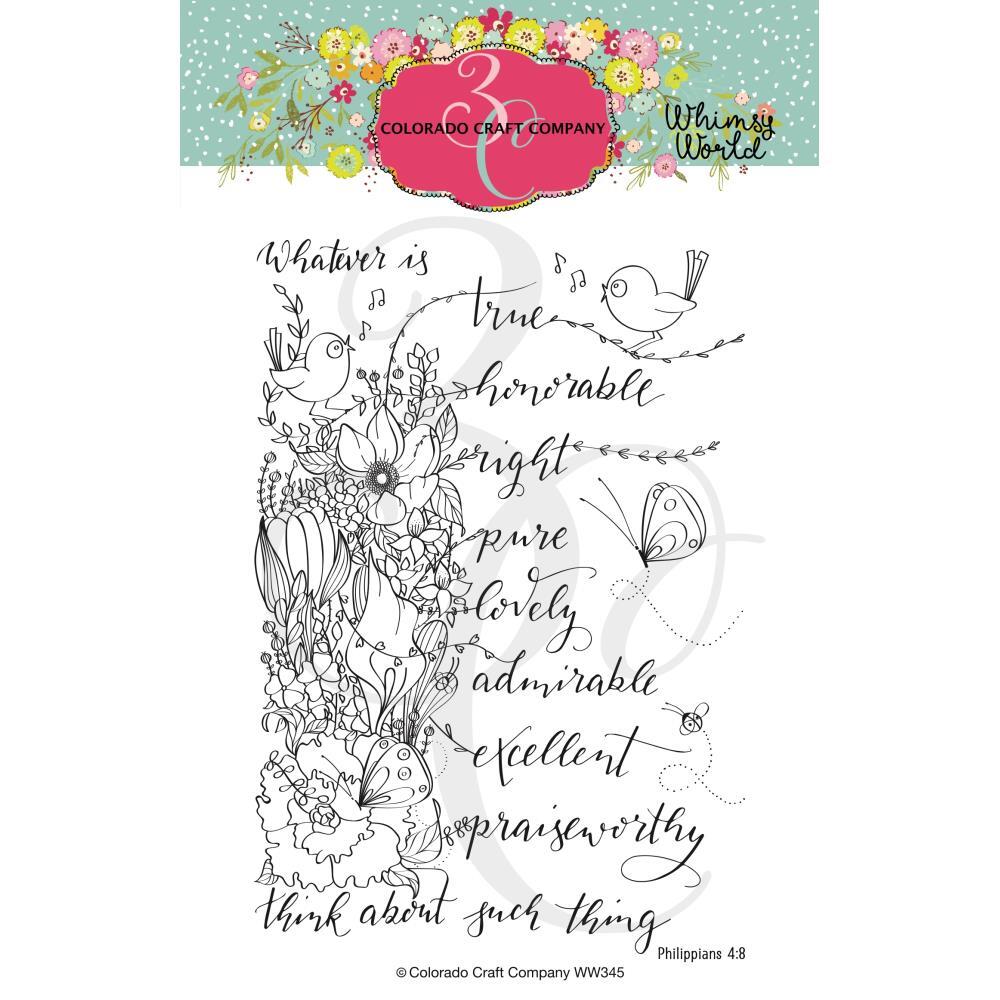 3C
COLORADO CRAFT COMPANY
Whimsy
World
Whatever is
true
honorable
right
pure
lovely
admirable
excellent
praiseworthy
think about such thing
Philippians 4:8
© Colorado Craft Company WW345